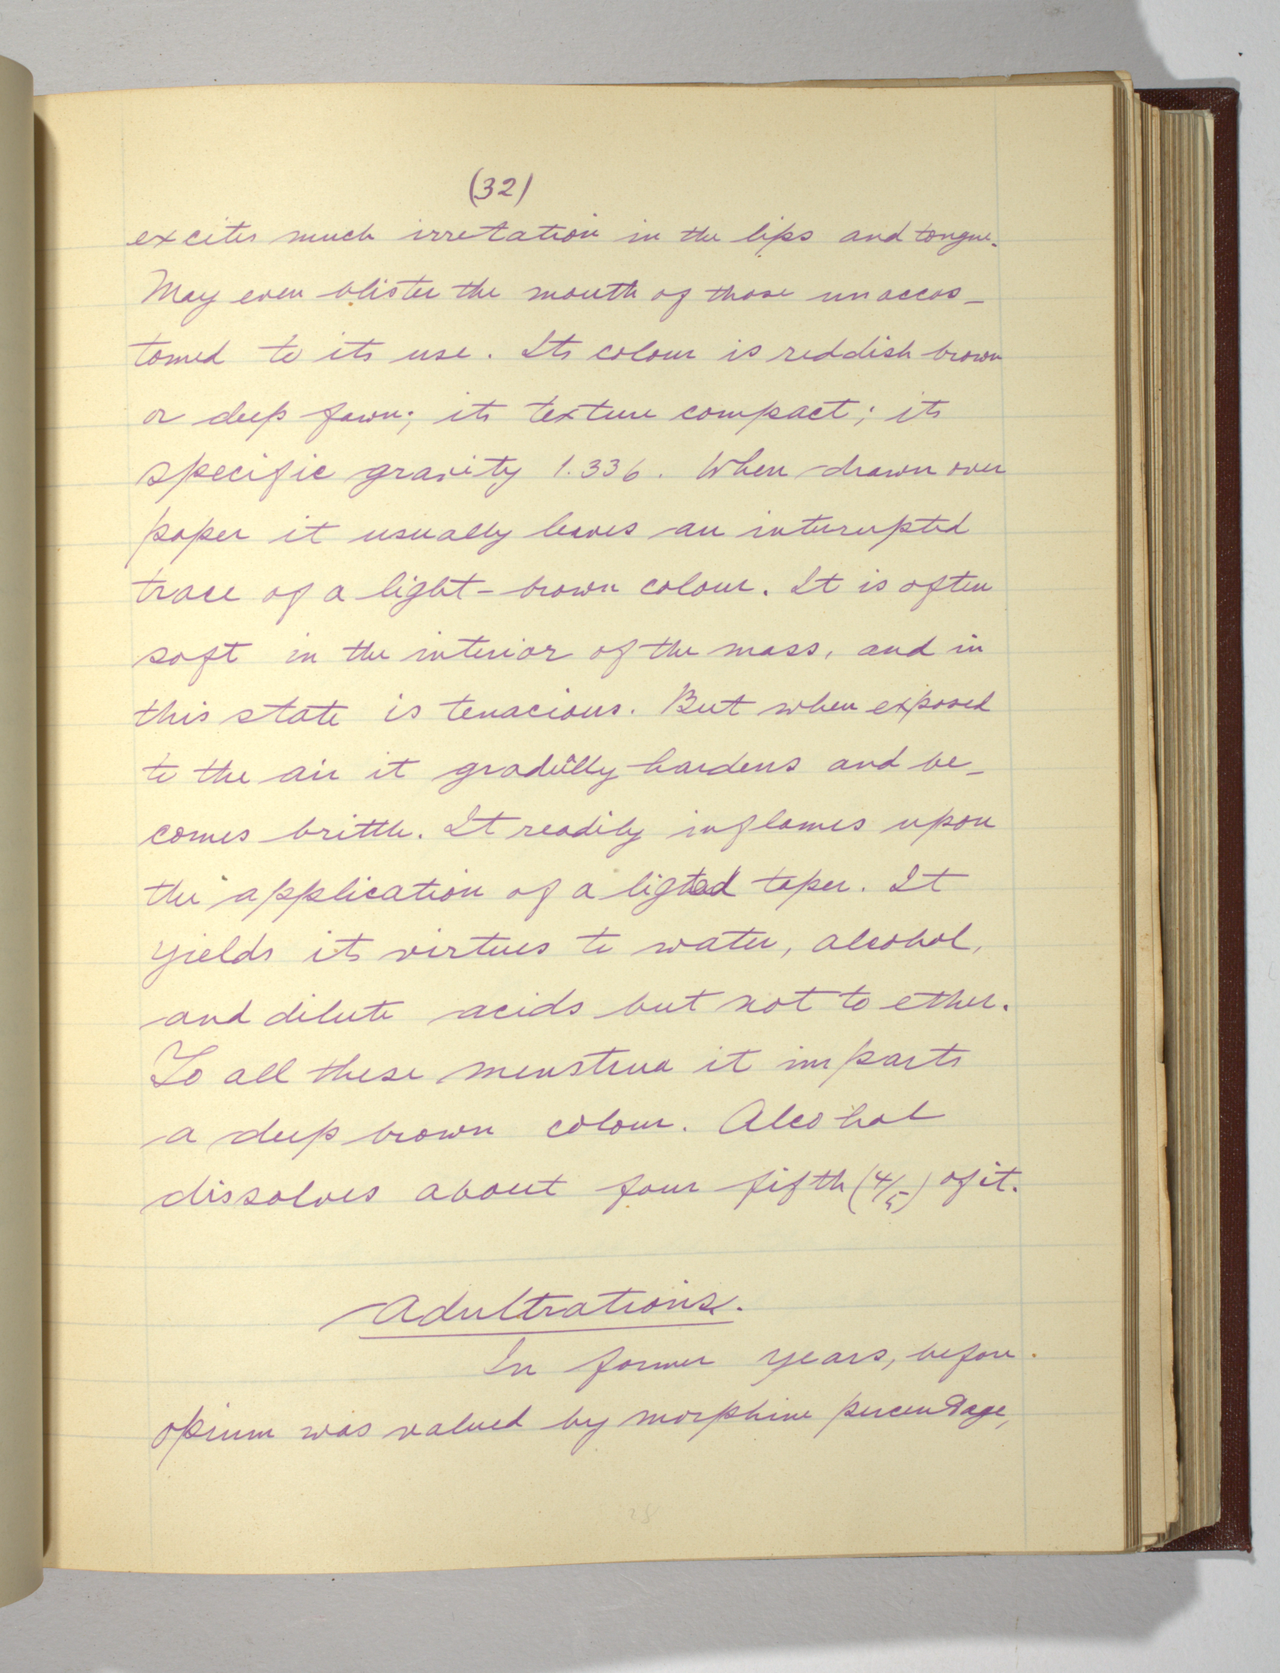 (32)
excites much irretation in the lips and tongue.
May even blister the mouth of those unaccos-
tomed to its use. Its colour is reddish brown
or deep fawn; its texture compact; its
specific gravity 1.336. When drawn over
paper it usually leaves an interupted
trace of a light-brown colour. It is often
soft in the interior of the mass, and in
this state is tenacious. But when exposed
to the air it gradully hardens and be-
comes brittle. It readily inflames upon
the application of a ligted taper. It
yields its virtues to water, alcohol,
and dilute acids but not to ether.
To all these menstrua it imparts
a deep brown colour. Alcohol
dissolves about four fifth (4/5) of it.
Adultrations.
In former years, before
opium was valued by morphine percentage,
28